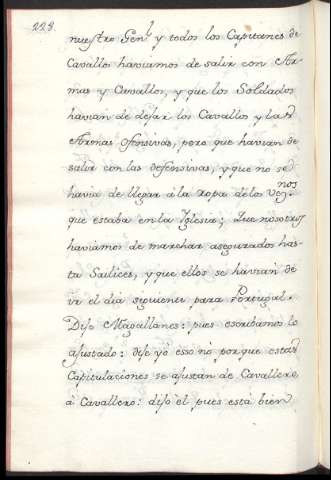 229.
nuestro Gen.l y todos los Capitanes de
Cavallos haviamos de salir con Ar-
mas y Cavallos, y que los Soldados
havian de dejar los Cavallos y las
Armas ofensivas, pero que havian de
salir con las defensivas, y que no se
havia de llegar à la ropa de los Vez.nos
que estaba en la Iglesia; Que nosotros
haviamos de marchar asegurados has-
ta Saelices, y que ellos se havian de
ir el dia siguiente para Portugal.
Dijo Magallanes: pues escribamos lo
ajustado: dije yò esso nò porque estas
Capitulaciones se ajustan de Cavallero
à Cavallero: dijo èl pues està bien